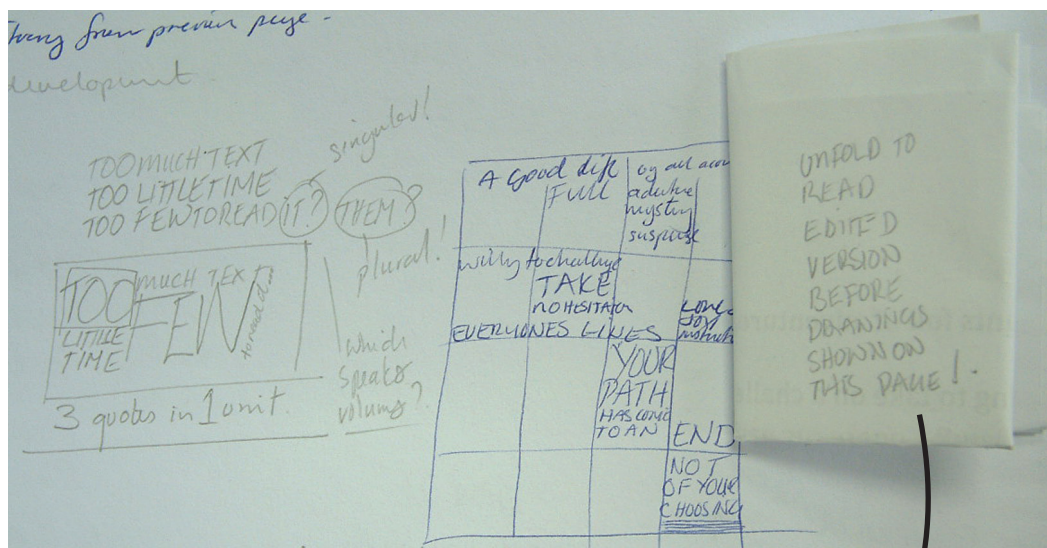 from previous page.
development.
singular!
TOO MUCH TEXT
TOO LITTLE TIME
TOO FEW TO READ IT? THEM?
plural!
TOO MUCH TEXT
FEW
LITTLE
TIME
3 quotes in 1 unit.
which
speaks
volumes?
A good
FULL
by all
mystery
suspense
willing to challenge
TAKE
NO HESITATION
EVERYONES LIVES
YOUR
PATH
HAS COME
TO AN END
NOT
OF YOUR
CHOOSING
UNFOLD TO
READ
EDITED
VERSION
BEFORE
DRAWINGS
SHOWN ON
THIS PAGE!